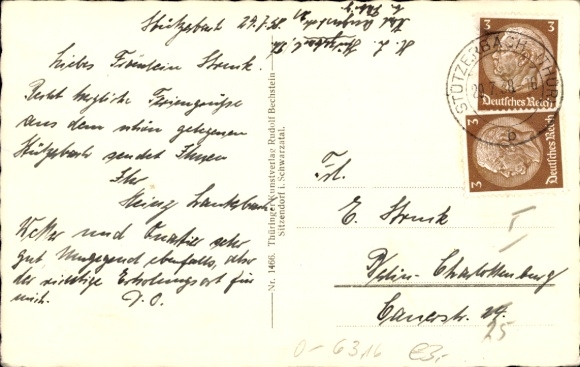 Stützerbach 29.7.38.
Liebes Fräulein Strunk.
Recht herzliche Feriengrüße
aus dem schön gelegenen
Stützerbach sendet Ihnen
Ihr
Wetter und Quartier sehr
gut Umgegend ebenfalls, also
der richtige Erholungsort für
mich. D.O.
Nr. 1466. Thüringer Kunstverlag Rudolf Bechstein
Sitzendorf i. Schwarzatal.
3 3
STÜTZERBACH (THÜR)
29.7.38
b
Deutsches Reich
3 3
Deutsches Reich
Frl.
E. Strunk
Berlin-Charlottenburg
Cauerstr. 24.
25
0-6316